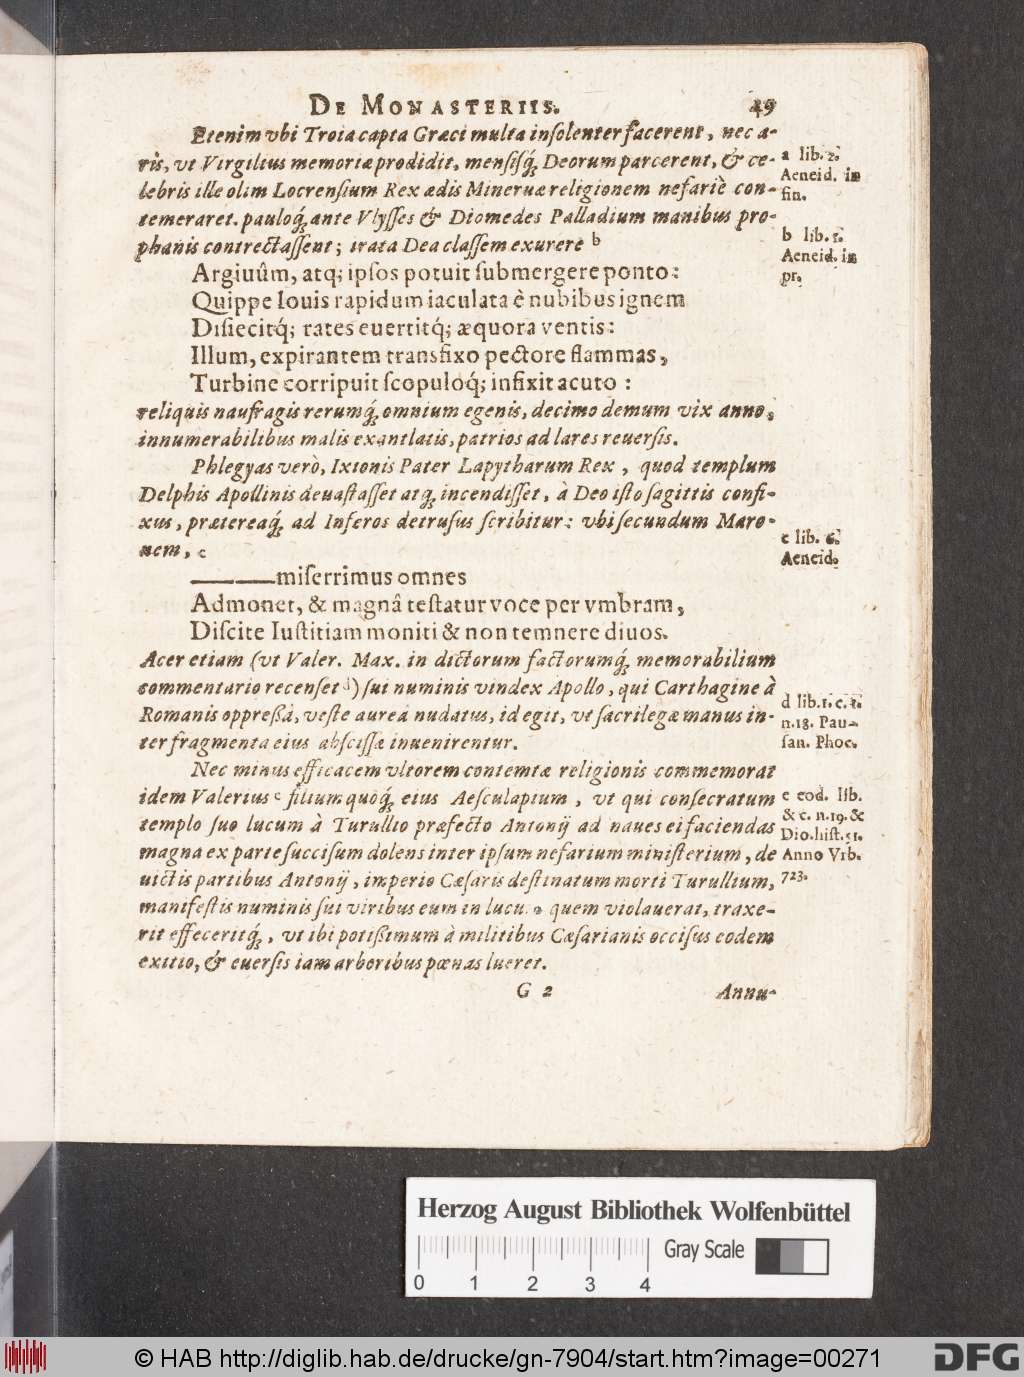 DE MONASTERIIS. 49
Etenim vbi Troia capta Græci multa insolenter facerent, nec a-
ris, vt Virgilius memoriæ prodidit, mensisq́; Deorum parcerent, & ce-
lebris ille olim Locrensium Rex ædis Mineruæ religionem nefariè con-
temeraret. pauloq́; ante Vlysses & Diomedes Palladium manibus pro-
phanis contrectassent; irata Dea classem exurere b
Argiuûm, atq; ipsos potuit submergere ponto:
Quippe Iouis rapidum iaculata è nubibus ignem
Disiecitq́; rates euertitq́; æquora ventis:
Illum, expirantem transfixo pectore flammas,
Turbine corripuit scopuloq́; infixit acuto:
reliquis naufragis rerumq́; omnium egenis, decimo demum vix anno,
innumerabilibus malis exantlatis, patrios ad lares reuersis.
Phlegyas verò, Ixionis Pater Lapytharum Rex, quod templum
Delphis Apollinis deuastasset atq́; incendisset, à Deo isto sagittis confi-
xus, prætereaq́; ad Inferos detrusus scribitur: vbi secundum Maro-
nem, c
——— miserrimus omnes
Admonet, & magnâ testatur voce per vmbram,
Discite Iustitiam moniti & non temnere diuos.
Acer etiam (vt Valer. Max. in dictorum factorumq́; memorabilium
commentario recenset d) sui numinis vindex Apollo, qui Carthagine à
Romanis oppreßa, veste aurea nudatus, id egit, vt sacrilegæ manus in-
ter fragmenta eius abscissæ inuenirentur.
Nec minus efficacem vltorem contemtæ religionis commemorat
idem Valerius e filium quoq́; eius Aesculapium, vt qui consecratum
templo suo lucum à Turullio præfecto Antonij ad naues ei faciendas
magna ex parte succisum dolens inter ipsum nefarium ministerium, de
uictis partibus Antonij, imperio Cæsaris destinatum morti Turullium,
manifestis numinis sui viribus eum in lucum quem violauerat, traxe-
rit effeceritq́;, vt ibi potißimum à militibus Cæsarianis occisus eodem
exitio, & euersis iam arboribus pœnas lueret.
G 2 Annu-
a lib. 2.
Aeneid. in
fin.
b lib. 1.
Aeneid. in
pr.
c lib. 6.
Aeneid.
d lib. 1. c. 1.
n. 18. Pau-
san. Phoc.
e eod. lib.
& c. n. 19. &
Dio. hist. 51.
Anno Vrb.
723.
Herzog August Bibliothek Wolfenbüttel
0 1 2 3 4 Gray Scale
© HAB http://diglib.hab.de/drucke/gn-7904/start.htm?image=00271
DFG